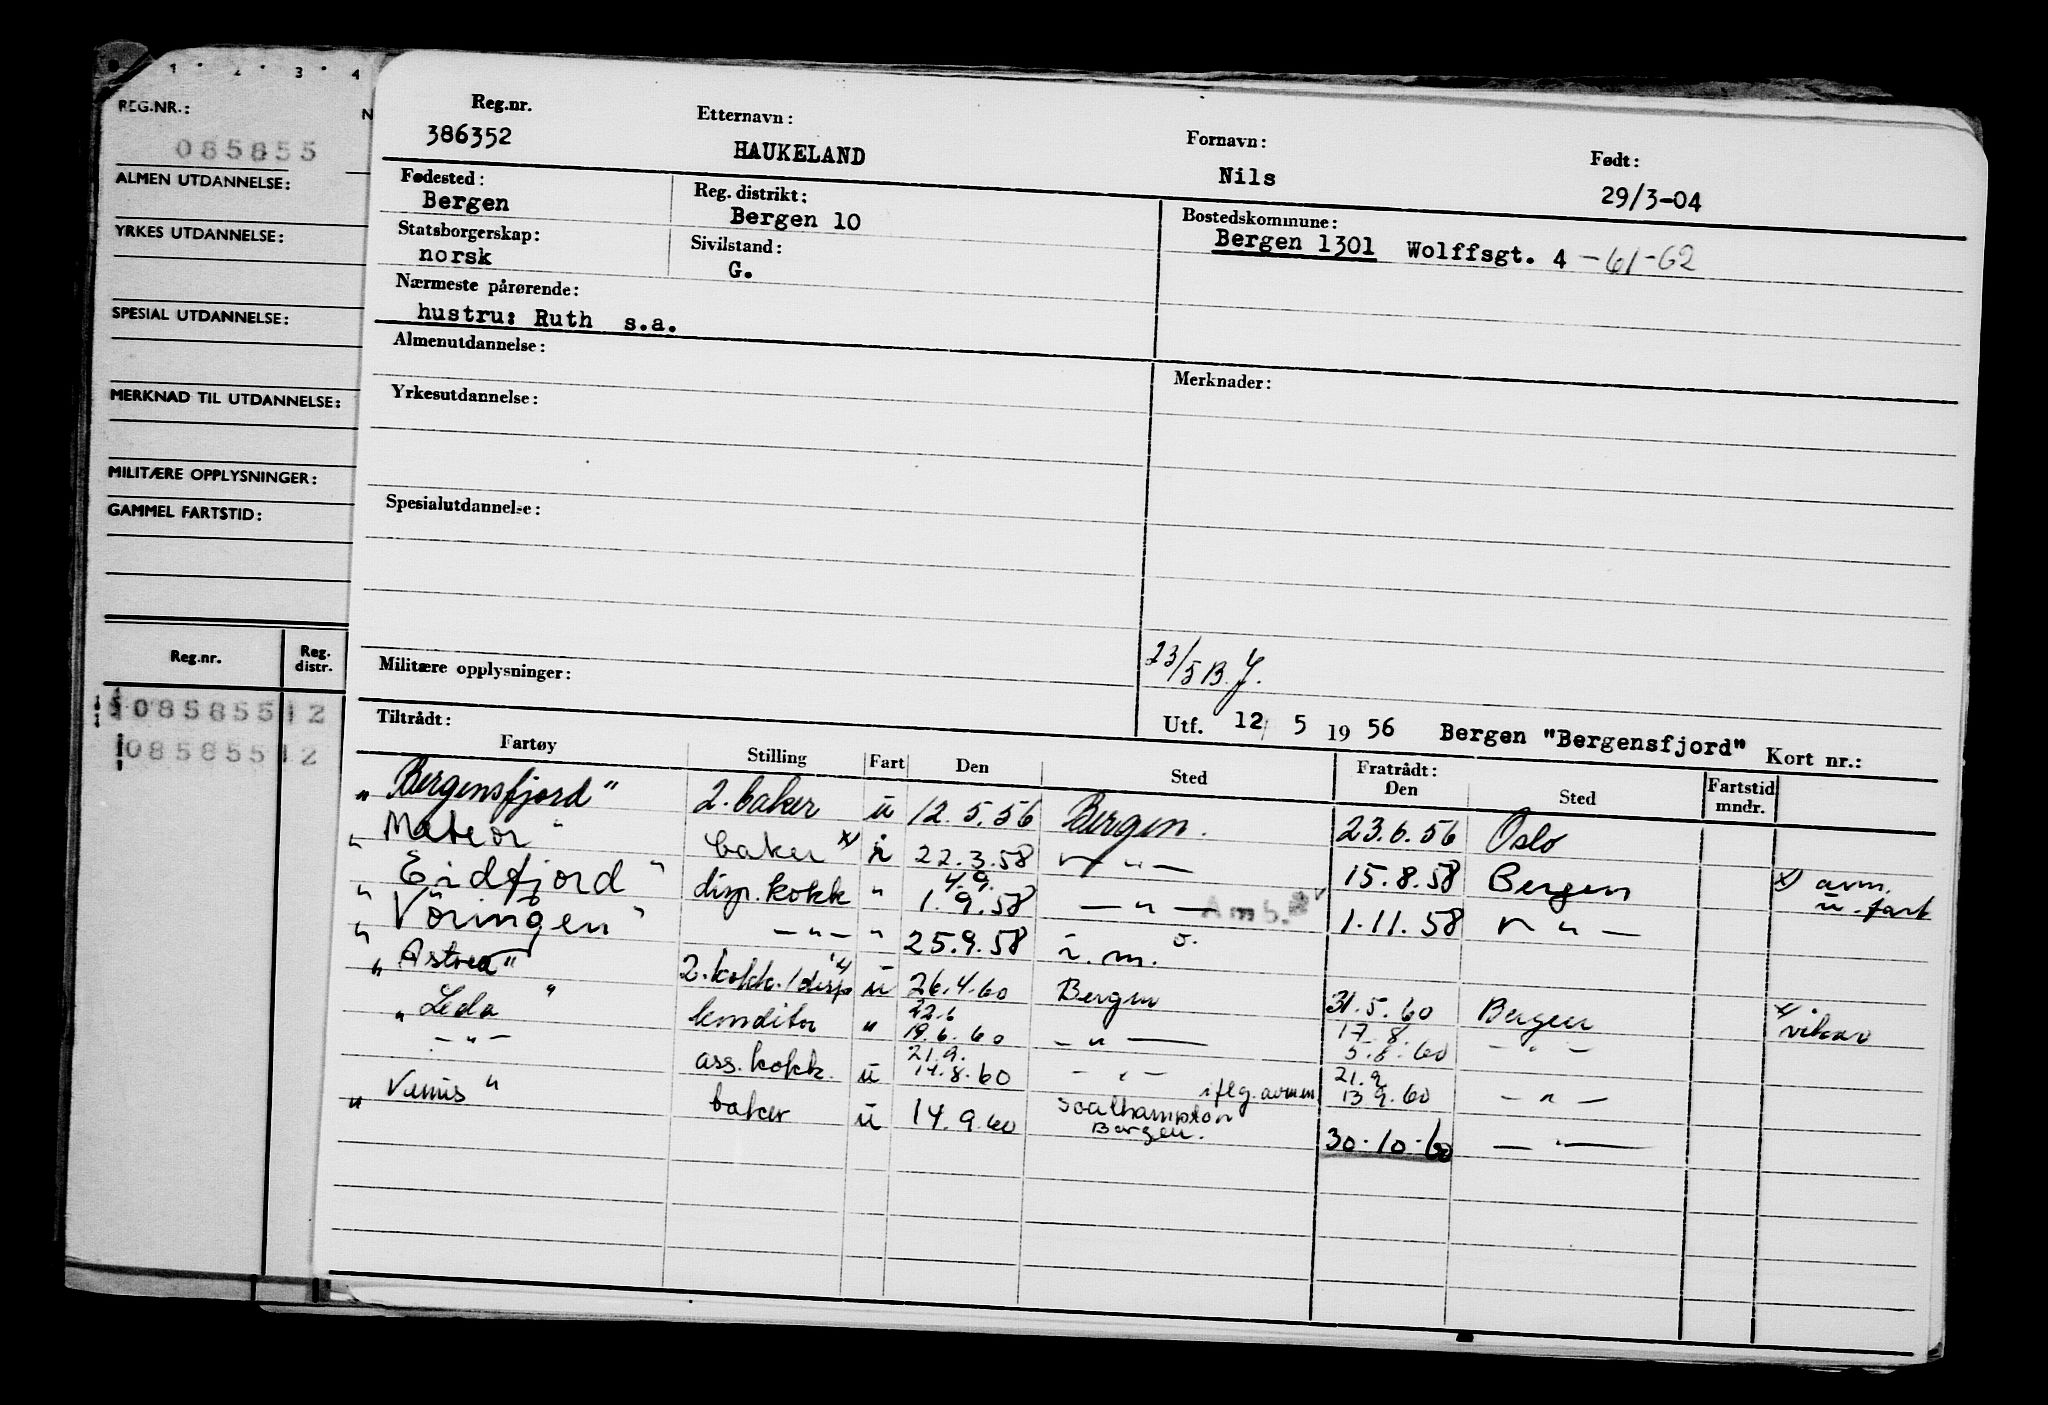 1 2 3 4
REG.NR.: N
085855
ALMEN UTDANNELSE:
YRKES UTDANNELSE:
SPESIAL UTDANNELSE:
MERKNAD TIL UTDANNELSE:
MILITÆRE OPPLYSNINGER:
GAMMEL FARTSTID:
Reg.nr. Reg. distr.
085855 12
085855 12
Reg.nr. Etternavn: Fornavn: Født:
386352 HAUKELAND Nils 29/3-04
Fødested: Reg. distrikt: Bostedskommune:
Bergen Bergen 10 Bergen 1301 Wolffsgt. 4 - 61-62
Statsborgerskap: Sivilstand:
norsk G.
Nærmeste pårørende:
hustru: Ruth s.a.
Almenutdannelse: Merknader:
Yrkesutdannelse:
Spesialutdannelse:
Militære opplysninger: 23/5 B.J.
Tiltrådt: Utf. 12/ 5 19 56 Bergen "Bergensfjord" Kort nr.:
Fartøy Stilling Fart Den Sted Fratrådt: Den Sted Fartstid mndr.
" Bergensfjord" 2. baker u 12.5.56 Bergen. 23.6.56 Oslo
" Meteor " baker x) i 22.3.58 — " — 15.8.58 Bergen x) avm. u. fart
" Eidfjord " disp. kokk " 4.9. 1.9.58 — " — 1.11.58 — " —
" Vöringen " — " — " 25.9.58 i.m.
" Astrea" 2. kokk/disp x) u 26.4.60 Bergen 31.5.60 Bergen x) vikar
" Leda " konditor " 22.6 19.6.60 — " — 17.8 5.8.60 — " —
— " — ass. kokk. u 21.9. 14.8.60 — " — 21.9. 13.9.60 — " —
" Venus " baker u 14.9.60 Southampton iflg. avmm Bergen. 30.10.60 — " —